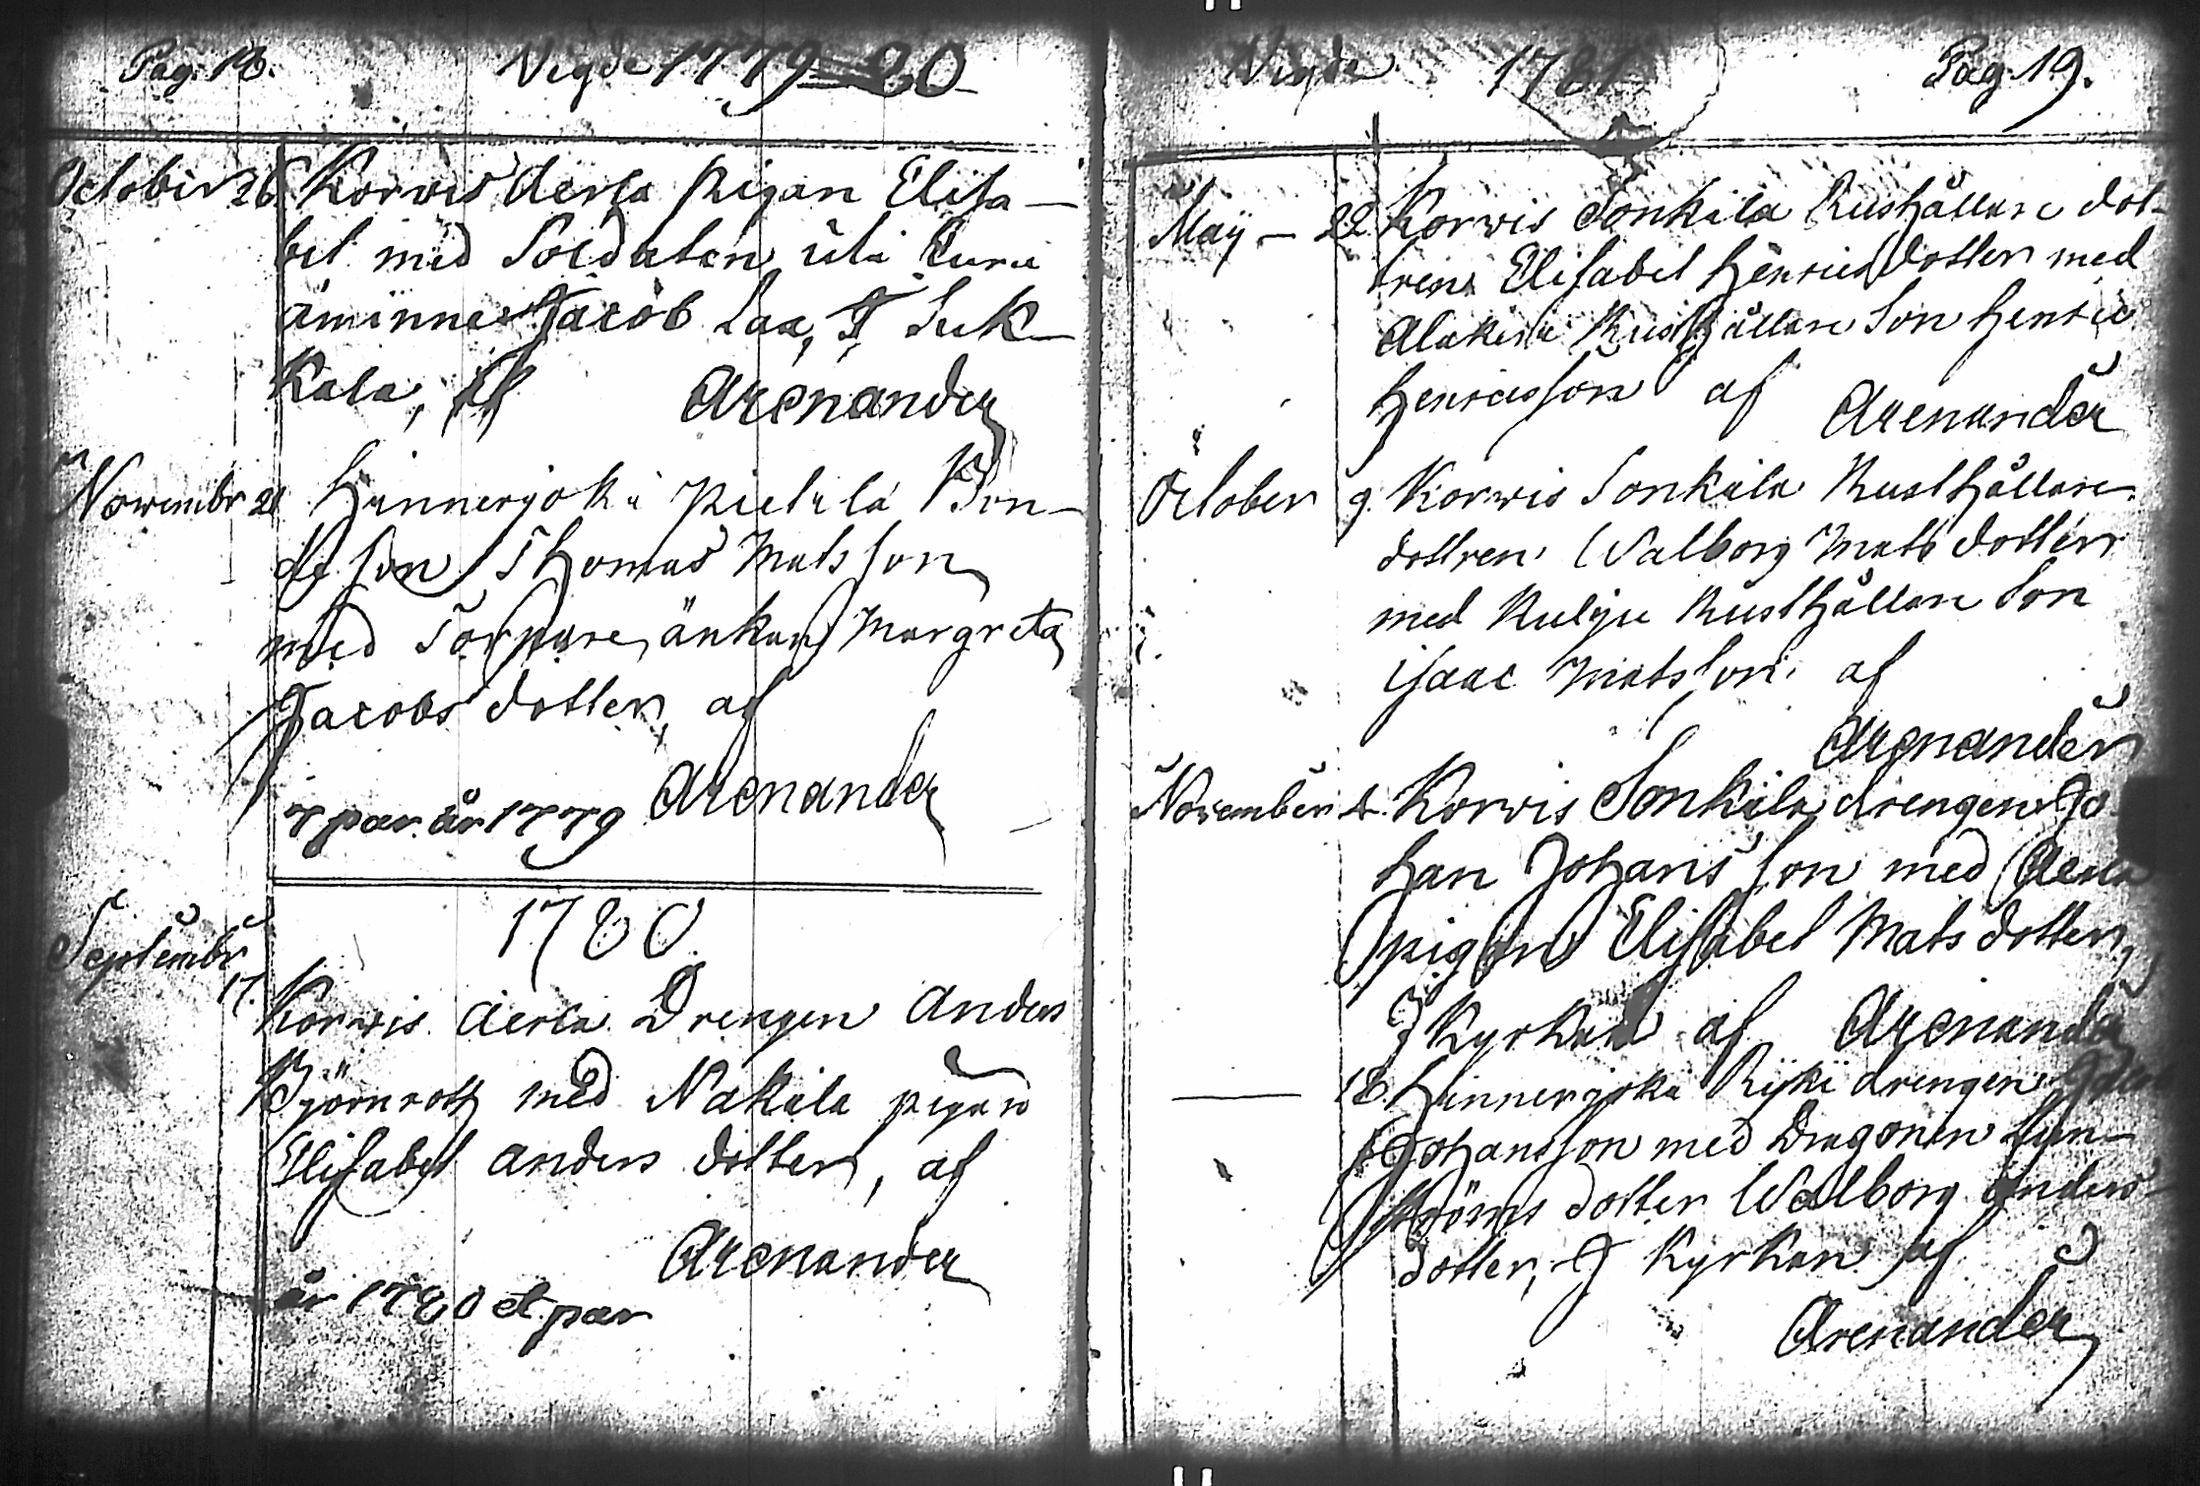 Pag. 18. Vigde 1779 80
October 26 Korvis Aerla pigan Elisa-
bet med Soldaten uti Eura
åminne Jacob Laa, I Suk-
kala, af Arenander
Novembr 21 Hinnerjoki pietilä Bon-
de son Thomas Mats son
med Torpare änkan Margreta
Jacobs dotter, af
Arenander
7 par år 1779
1780
Septembr
17. Korvis Aerla Drengen Anders
Björnroth med Nakila pigan
Elisabet Anders dotter, af
Arenander
år 1780 et par
Vigde 1781 Pag. 19.
Maÿ - 22 Korvis Sonkila Rusthållare dot-
tren Elisabet Henrics dotter med
Rusthållare Son Henric
Henricsson af Arenander
October 9. Korvis Sonkila Rusthållare
dottren Walborg Mats dotter
med Kulju Rusthållare Son
Isaac Matsson af
Arenander
November 4. Korvis Sonkila drengen Jo
han Johans son med Aerla
pigan Elisabet Mats dotter,
I Kyrkan af Arenander
18. Hinnerjoki drengen
Johansson med Dragonen
ströms dotter Walborg Anders
dotter, I Kyrkan af
Arenander